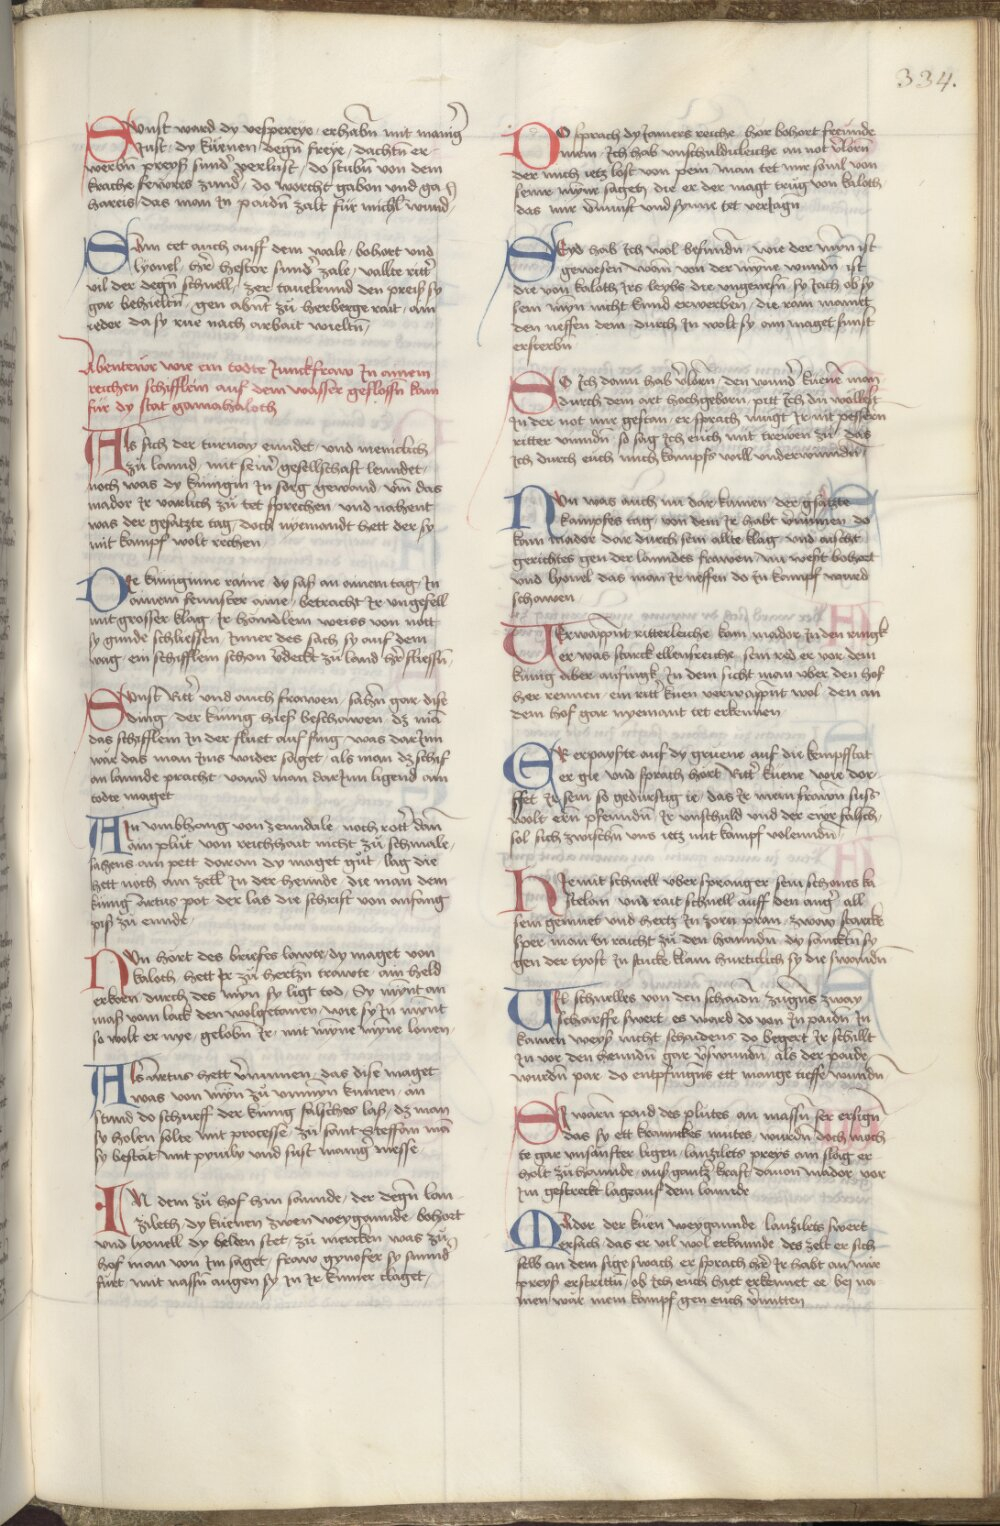 334.
Sunst ward dy vespereye / erhabn̄ mit maniḡ
Just / dy küenen degn̄ freye / dachtn̄ er
werbn̄ preyß sund' verlust / do stubn̄ von dem
krache fewers zund' / do worcht gaban und ga
hareis / das man In paidn̄ zalt für michl wund /
Sam tet auch auff dem wale / bohort und
lyonel / her hestor sund' zale / vallte ritt'
vil der degn̄ schnell / zer tauelrund den preiß sy
gar behieltn̄ / gen abnt zu herberge rait / am
ieder da sy rue nach arbait wieltn̄ /
Abentewr wie ein todte Junckfraw In ainem
reichen schifflein auf dem wasser geflossn̄ kam
für dy stat gamahaloth
Als sich der turnay enndet / und meniclich
zu lannd / mit seiner gesellschaft lenndet /
noch was dy künigin In sorg gewand / vm̄ das
mador Ir varlich zu tet sprechen / und nahent
was der gesatzte tag / doch nyemandt hett der sy
mit kampf wolt rechen
Die künginne raine / dy saß an ainem tag / In
ainem fennster aine / betracht Ir ungefell
mit grosser klag / Ir hanndlein weiss von nott
sy gunde schliessen / Inner des sach sy auf dem
wag / ein schifflein schon v̄deckt zu land her fliessn̄ /
Sunst Ritt' und auch frawen / sahn̄ gar dise
ding / der künig hieß beschawen / dz man
das schifflein In der fluet auf fing / was dar Inn
wär das man Ims wider saget / als man dz schif
an lannde pracht / vannd man dar Inn ligend ain
todte maget
Ain vmbhang von zenndale / noch rotter dann
ain pluet von reichhait nicht zu schmale /
sahens ain pett daran dy maget guet / lag die
hett noch ain zell In der hennde / die man dem
künig Artus pot / der las die schrift von anfang
piß zu ennde /
Nun hort des briefes lawte / dy maget von
kaloth / hett Ir zu hertzn̄ trawte / ain held
erkorn / durch des myn sy ligt tod / Sy mynt an
maß vom lack den wolgetanen / wie sy In mynt
so wolt er nye / gelobn̄ Ir / mit myne myne lonen /
Als Artus hett v̄numen / das dise maget
was von myn zu unnyn kumen / an
stund do schueff der künig falsches laß / dz man
sy holen solte mit processe / zu sant Steffan man
sy bestat mit pymbn̄ und sust manig' messe /
In dem zu hof hin sannde / der degn̄ lan
zileth / dy küenen zwen weygannde / bohort
und lyonell dy helden stet / zu mercken was zu
hof man von Im saget / fraw gynofer sy sunnd
fürt mit nassn̄ augen sy In Ir kumer claget /
Do sprach dy Jamers reiche / hör bohort freunde
mein / Ich hab unschuldicleiche / an not v̄lorn
der mich ietz lost von pein / man tet mir souil von
seiner myne sagen / die er der magt trueg von kaloth /
das mir v̄nunst und synne tet veriagn
Seyd hab Ich wol befundn̄ / wie der myn ist
gewesen / wann von der myne wundn̄ / ist
die von kaloth Irs leybs die ungenesn̄ / sy sach ob sy
sein myn nicht kund erwerben / die rain mainet
den neffen dein / durch In wolt sy ain maget sunst
ersterbn̄
So Ich dann hab v̄lorn / den wund' küene man
durch dein art hochgeborn / pitt Ich du wollest
In der not mir gestan / er sprach mügt Ir nit pessern
ritter vindn̄ / so sag Ich euch mit trewen zu / das
Ich durch euch mich kampfs will underwinndn̄ /
Nun was auch nu dar kumen / der gesatzte
kampfes tag / von dem Ir habt v̄nummen / do
kam mador dar durch sein allte klag / und aischt
gerichtes gen der lanndes frawen / nu west bohort
und lyonel das man Ir neffen do In kampf wurd
schawen
Verwappnt ritterleiche / kam mador In den ringk
er was starck ellensreiche / sein red er vor dem
künig aber anfingk / In dem sicht man vber den hof
her rennen / ein ritt' küen verwappnt wol / den an
dem hof gar nyemant tet erkennen
Er erpayste auf dy gruene / auf die kempfstat
er gie / und sprach hört Ritt' küene / wie dor
ffet Ir sein so gedürstig ie / das Ir mein frawn̄ sust
wolt ern̄ pfenndn̄ / Ir unschuld und der ewr falsch /
sol sich zwischn̄ uns ietz mit kampf volenndn̄ /
Hiemit schnell vber spranger / sein schones ka
stelan / und rait schnell auff den ang' / all
sein gemuet und hertz In zorn pran / zway starcke
sper man In raicht zu den hanndn̄ / dy sanncktn̄ sy
gen der tyost / In stucke klain hurticlich sy die swandn̄
Vil schnelles von den schaidn̄ / zugns zway
scharffe swert / es ward do von In paidn̄ / In
kamen weyß nicht schaidens do begert / Ir schillt
In vor den henndn̄ gar v̄swundn̄ / als der paide
wurdn̄ par / do entpfingns ett manige tieffe wundn̄
Sy warn paid des pluetes / an massn̄ ser ersign̄
das sy ett kranckes mutes / wurdn̄ doch moch
te gar unsanfter ligen / lanzilets preys ain slag er
holt zu hannde / auß gantz' kraft dauon mador / vor
Im gestreckt lag auf dem lannde
Mador der küen weygannde / lanzilets swert
ersach / das er vil wol erkannde / des zelt er sich
selb an dem sige swach / er sprach her Ir habt an mir
preyß erstrittn̄ / ob Ich euch hiet erkennet ee / bei na
men / wär mein kampf gen euch v̄mitten